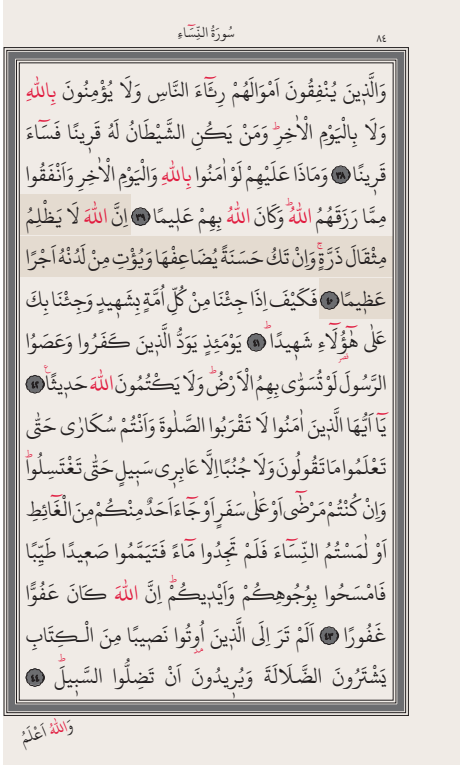 سُورَةُ النِّسَٓاءِ
٨٤
وَالَّذ۪ينَ يُنْفِقُونَ اَمْوَالَهُمْ رِئَٓاءَ النَّاسِ وَلَا يُؤْمِنُونَ بِاللّٰهِ
وَلَا بِالْيَوْمِ الْاٰخِرِۜ وَمَنْ يَكُنِ الشَّيْطَانُ لَهُ قَر۪ينًا فَسَٓاءَ
قَر۪ينًا ﴿٣٨﴾ وَمَاذَا عَلَيْهِمْ لَوْ اٰمَنُوا بِاللّٰهِ وَالْيَوْمِ الْاٰخِرِ وَاَنْفَقُوا
مِمَّا رَزَقَهُمُ اللّٰهُۜ وَكَانَ اللّٰهُ بِهِمْ عَل۪يمًا ﴿٣٩﴾ اِنَّ اللّٰهَ لَا يَظْلِمُ
مِثْقَالَ ذَرَّةٍۚ وَاِنْ تَكُ حَسَنَةً يُضَاعِفْهَا وَيُؤْتِ مِنْ لَدُنْهُ اَجْرًا
عَظ۪يمًا ﴿٤٠﴾ فَكَيْفَ اِذَا جِئْنَا مِنْ كُلِّ اُمَّةٍ بِشَه۪يدٍ وَجِئْنَا بِكَ
عَلٰى هٰٓؤُ۬لَٓاءِ شَه۪يدًاۜ ﴿٤١﴾ يَوْمَئِذٍ يَوَدُّ الَّذ۪ينَ كَفَرُوا وَعَصَوُا
الرَّسُولَ لَوْ تُسَوّٰى بِهِمُ الْاَرْضُۜ وَلَا يَكْتُمُونَ اللّٰهَ حَد۪يثًا۟ ﴿٤٢﴾
يَٓا اَيُّهَا الَّذ۪ينَ اٰمَنُوا لَا تَقْرَبُوا الصَّلٰوةَ وَاَنْتُمْ سُكَارٰى حَتّٰى
تَعْلَمُوا مَا تَقُولُونَ وَلَا جُنُبًا اِلَّا عَابِر۪ي سَب۪يلٍ حَتّٰى تَغْتَسِلُواۜ
وَاِنْ كُنْتُمْ مَرْضٰٓى اَوْ عَلٰى سَفَرٍ اَوْ جَٓاءَ اَحَدٌ مِنْكُمْ مِنَ الْغَٓائِطِ
اَوْ لٰمَسْتُمُ النِّسَٓاءَ فَلَمْ تَجِدُوا مَٓاءً فَتَيَمَّمُوا صَع۪يدًا طَيِّبًا
فَامْسَحُوا بِوُجُوهِكُمْ وَاَيْد۪يكُمْۜ اِنَّ اللّٰهَ كَانَ عَفُوًّا
غَفُورًا ﴿٤٣﴾ اَلَمْ تَرَ اِلَى الَّذ۪ينَ اُو۫تُوا نَص۪يبًا مِنَ الْكِتَابِ
يَشْتَرُونَ الضَّلَالَةَ وَيُر۪يدُونَ اَنْ تَضِلُّوا السَّب۪يلَۜ ﴿٤٤﴾
وَاللّٰهُ اَعْلَمُ